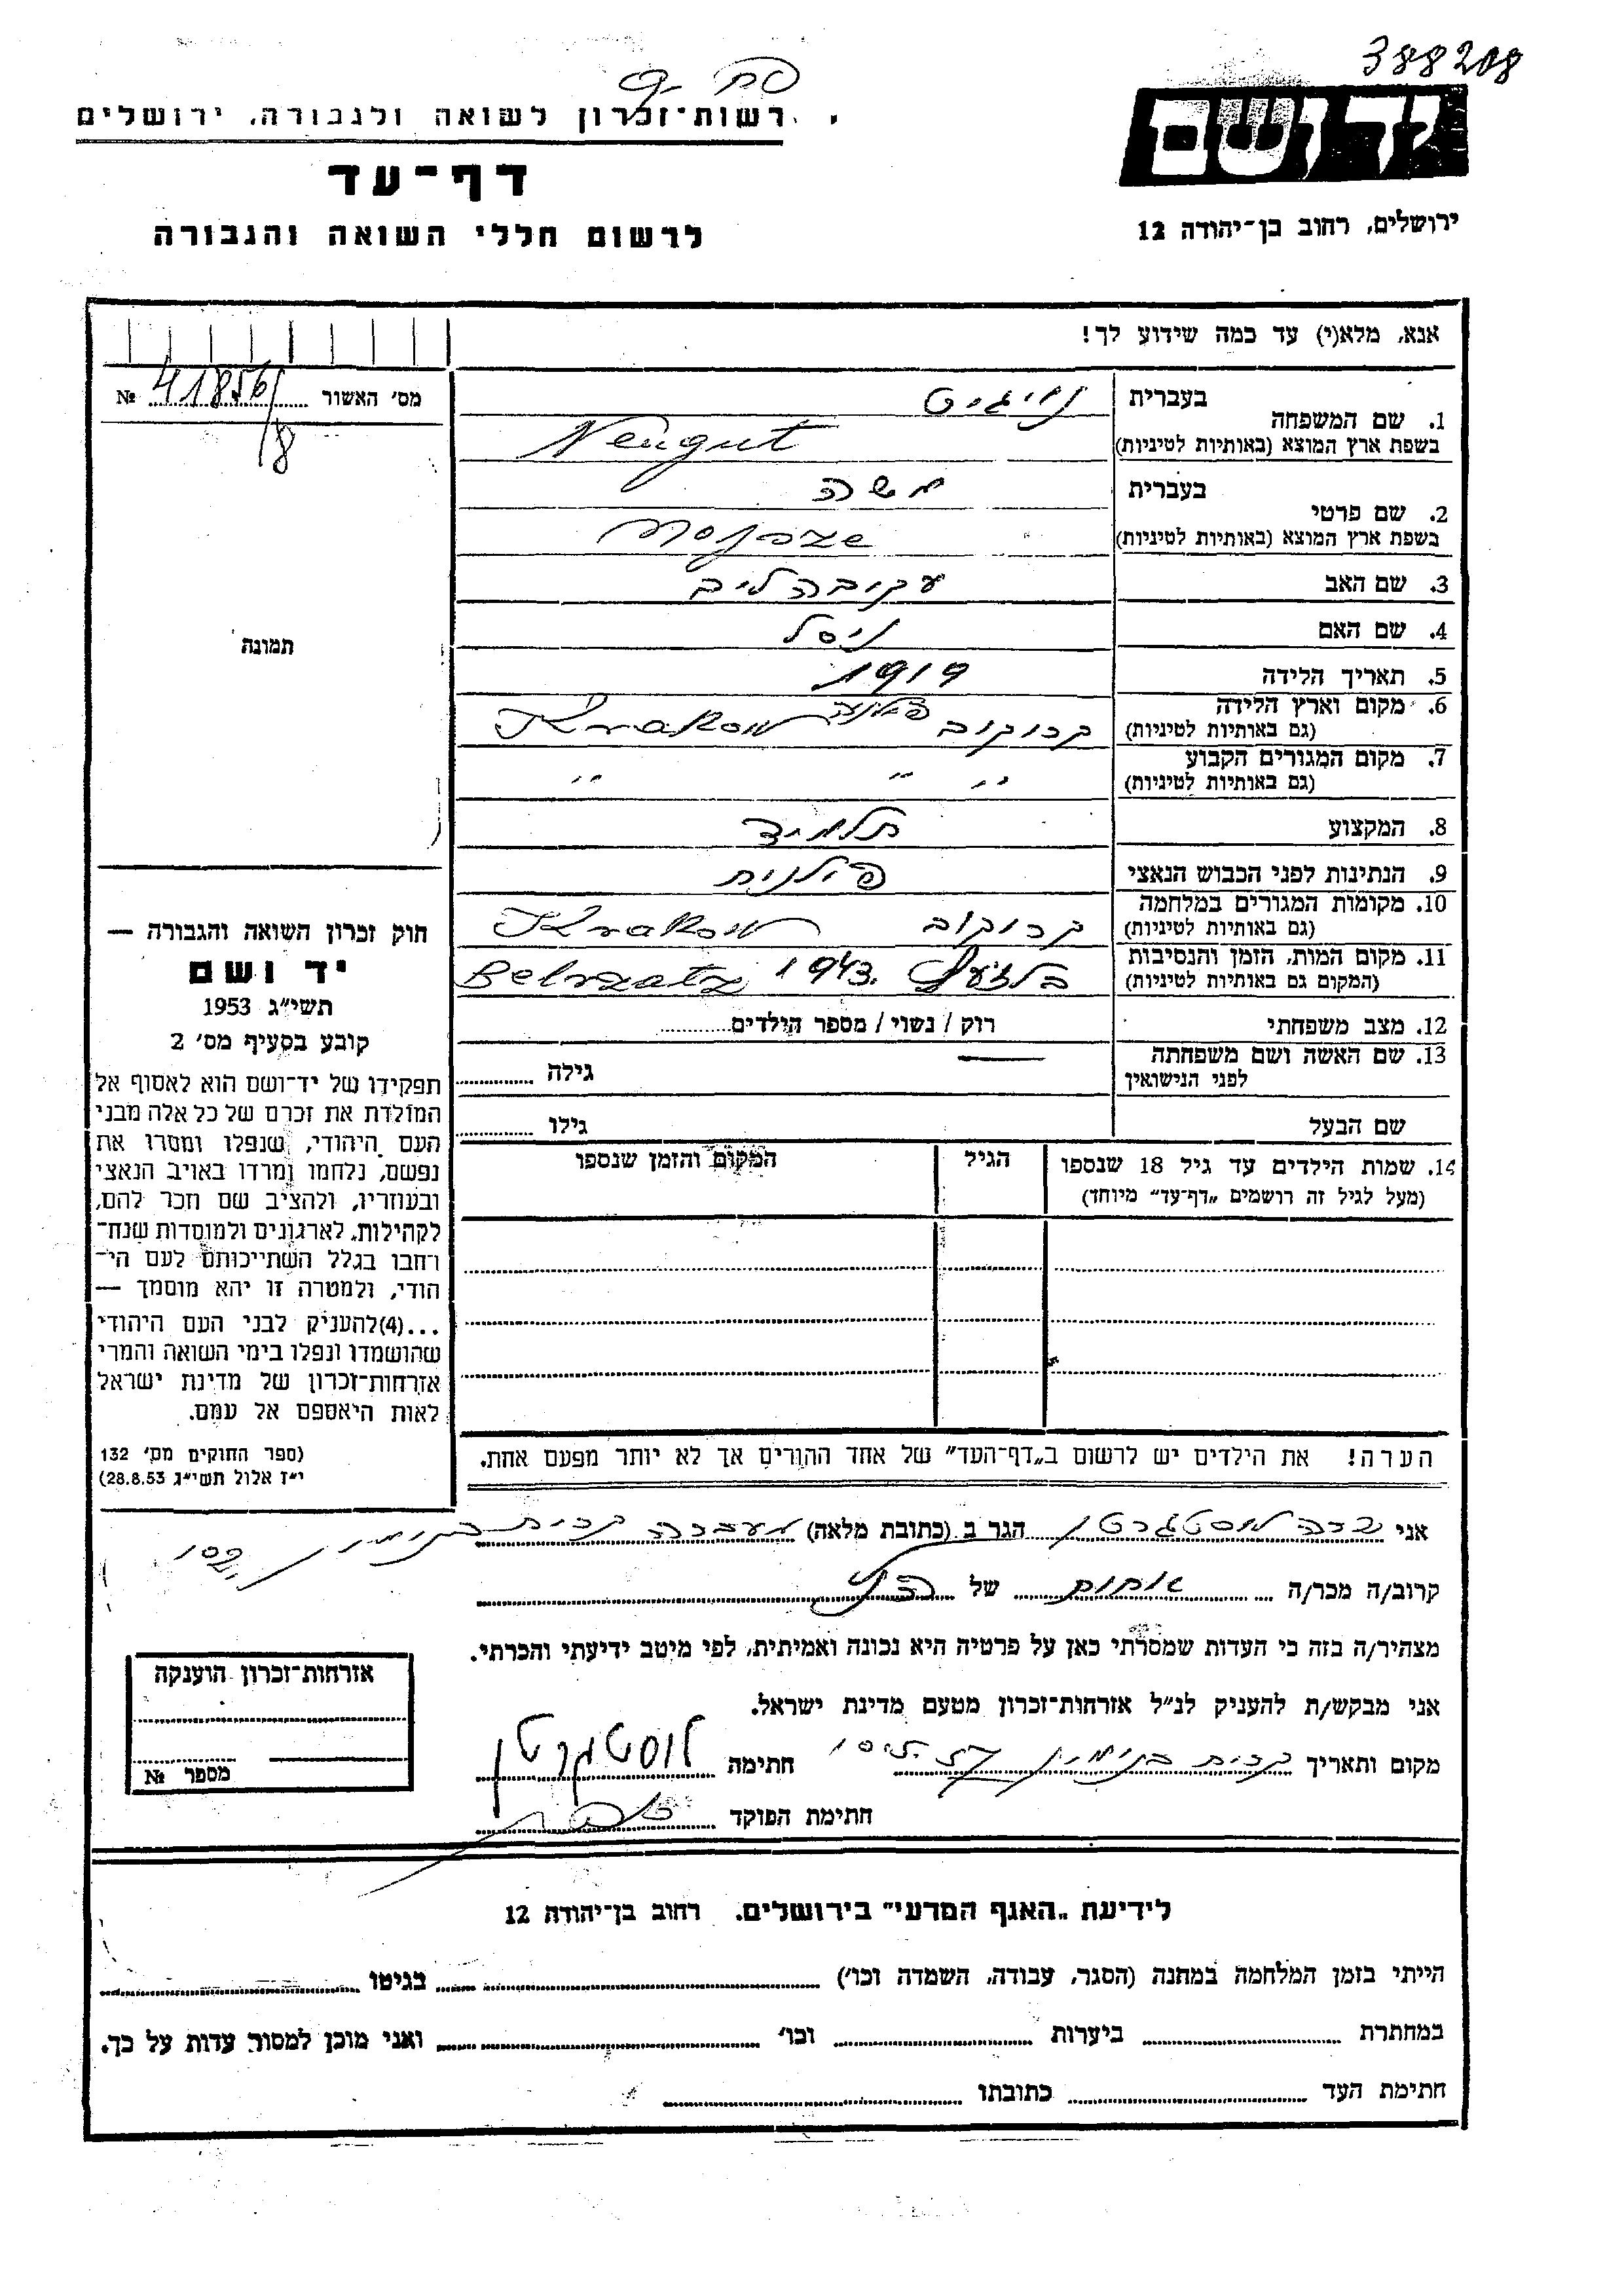 388208
רשות־זכרון לשואה ולגבורה, ירושלים
יד ושם
דף־עד
ירושלים, רחוב בן־יהודה 12
לרשום חללי השואה והגבורה
אנא, מלא(י) עד כמה שידוע לך!
מס׳ האשור 41856/8 №
1. שם המשפחה
בעברית
בשפת ארץ המוצא (באותיות לטיניות) Neugut
2. שם פרטי
בעברית משה
בשפת ארץ המוצא (באותיות לטיניות) Mojsze
3. שם האב עקיבה ליב
4. שם האם ניסל
5. תאריך הלידה 1919
6. מקום וארץ הלידה קרוקוב פולניה Krakow
(גם באותיות לטיניות)
7. מקום המגורים הקבוע " " "
(גם באותיות לטיניות)
8. המקצוע תלמיד
9. הנתינות לפני הכבוש הנאצי פולנית
10. מקומות המגורים במלחמה קרוקוב Krakow
(גם באותיות לטיניות)
11. מקום המות, הזמן והנסיבות 1943.
(המקום גם באותיות לטיניות)
12. מצב משפחתי רוק / נשוי / מספר הילדים
13. שם האשה ושם משפחתה — גילה
לפני הנישואין
שם הבעל גילו
14. שמות הילדים עד גיל 18 שנספו הגיל המקום והזמן שנספו
(מעל לגיל זה רושמים „דף־עד״ מיוחד)
תמונה
חוק זכרון השואה והגבורה —
יד ושם
תשי״ג 1953
קובע בסעיף מס׳ 2
תפקידו של יד־ושם הוא לאסוף אל
המולדת את זכרם של כל אלה מבני
העם היהודי, שנפלו ומסרו את
נפשם, נלחמו ומרדו באויב הנאצי
ובעוזריו, ולהציב שם וזכר להם,
לקהילות, לארגונים ולמוסדות שנח־
רחבו בגלל השתייכותם לעם הי־
הודי, ולמטרה זו יהא מוסמך —
...(4)להעניק לבני העם היהודי
שהושמדו ונפלו בימי השואה והמרי
אזרחות־זכרון של מדינת ישראל
לאות היאספם אל עמם.
(ספר החוקים מס׳ 132
י״ז אלול תשי״ג 28.8.53)
הערה! את הילדים יש לרשום ב„דף־העד״ של אחד ההורים אך לא יותר מפעם אחת.
אני שרה לוסטגרטן הגר ב (כתובת מלאה) מעברה קרית בנימין
קרוב/ה מכר/ה אחות של הנ״ל
מצהיר/ה בזה כי העדות שמסרתי כאן על פרטיה היא נכונה ואמיתית, לפי מיטב ידיעתי והכרתי.
אני מבקש/ת להעניק לנ״ל אזרחות־זכרון מטעם מדינת ישראל.
מקום ותאריך קרית בנימין חתימה לוסטגרטן
חתימת הפוקד
אזרחות־זכרון הוענקה
מספר №
לידיעת „האגף המדעי״ בירושלים. רחוב בן־יהודה 12
הייתי בזמן המלחמה במחנה (הסגר, עבודה, השמדה וכו׳) בגיטו
במחתרת ביערות וכו׳ ואני מוכן למסור עדות על כך.
חתימת העד כתובתו